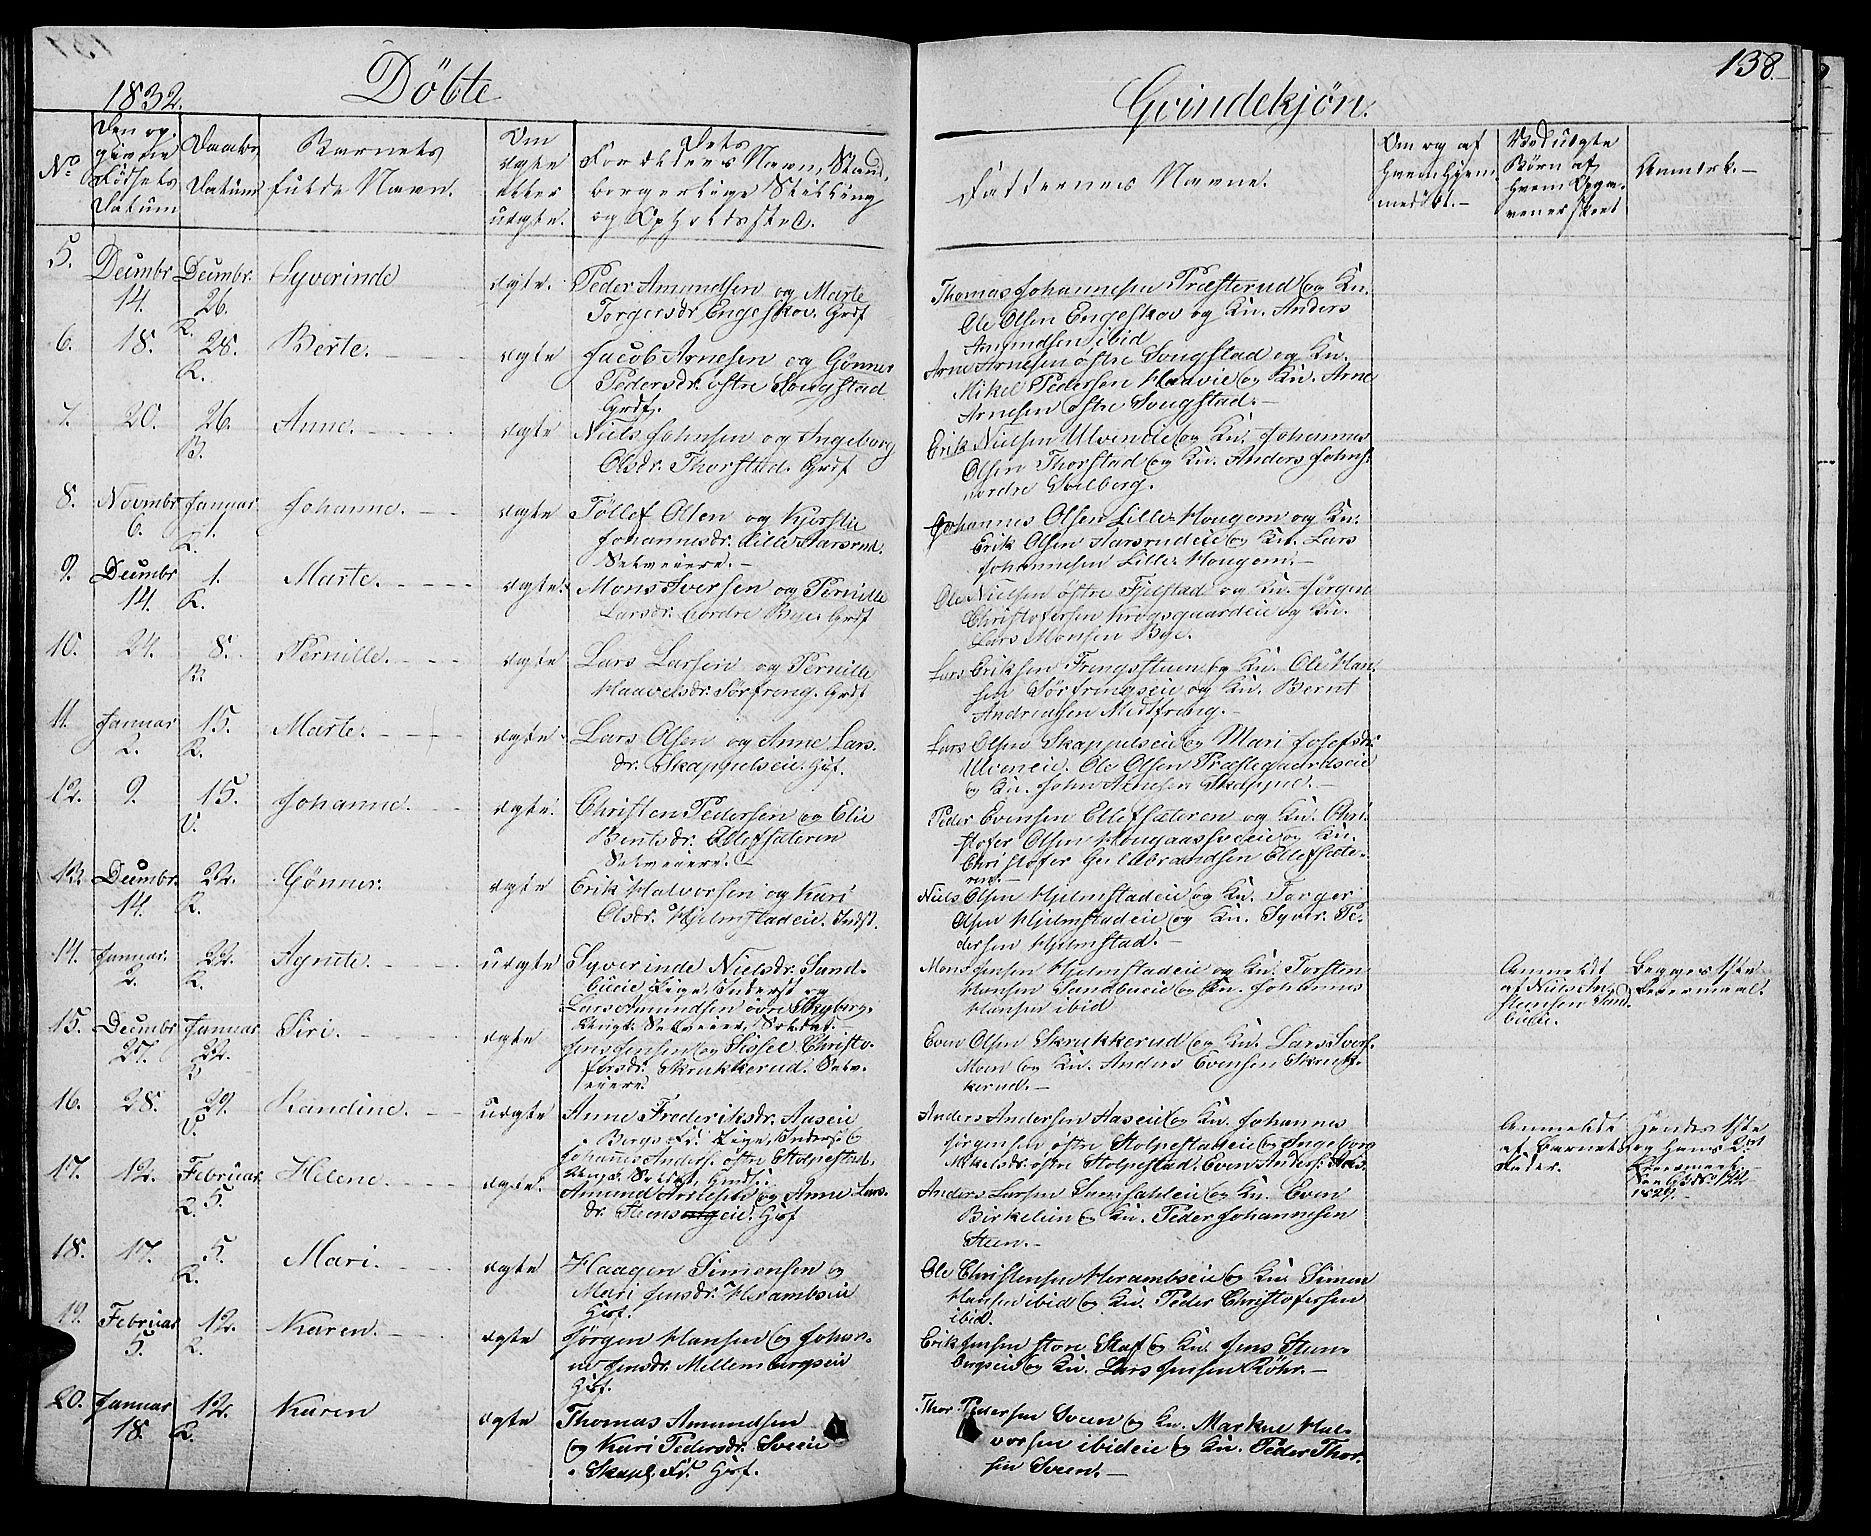 138.
1832.
Döbte
Qvindekjön.
No
Den opgivne Födsels Datum
Daabs Datum
Barnets fulde Navn.
Om ægte eller uægte.
Dets Forældres Navn, Stand, borgerlige Stilling og Opholdssted.
Faddernes Navne.
Om og af hvem hjemmedöbt.-
Ved uægte Börn af hvem Opgaven er skeet
Anmerk.-
5. Decembr 14. Decembr. 26. R. Syverinde ægte. Peder Amundsen og Marte
Torgersdr. Engeskov. Grdf
Thomas Johannesen Præsterud og Kn.
Ole Olsen Engeskov og Kn. Anders
Amundsen ibid
6. 18. 28. R. Berte. ægte Jacob Arnesen og Gönner
Pedersdr. östre Songstad
Grdf.
Arne Arnesen östre Songstad og Kn.
Mikel Pedersen Haavie og Kn. Arne
Arnesen östre Songstad.-
7. 20. 26. B. Anne. ægte Niels Johnsen og Ingeborg
Olsdr. Thorstad. Grdf
Erik Nielsen Ulvendie og Kn. Johannes
Olsen Thorstad og Kn. Anders Johns:
nordre Solberg.
8. Novmbr 6. Januar 1. R. Johanne. ægte Töllef Olsen og Kjerstie
Johannesdr. Lille Aarsrud.
Selveiere.-
Johannes Olsen Lille-Hougom og Kn.
Erik Olsen Aarsrudeie og Kn. Lars
Johannesen Lille-Hougom.-
9. Decembr 14. 1. R. Marte. ægte. Mons Iversen og Pernille
Larsdr. nordre Bye. Grdf
Ole Nielsen östre Fjelstad og Kn. Jörgen
Christofersen Krogsgaardeie og Kn.
Lars Monsen Bye.
10. 24. 8. B. Pernille. ægte Lars Larsen og Pernille
Haavelsdr. Sörfreng. Grdf
Lars Eriksen Frengstuen og Kn. Ole Han-
sen Sörfrengseie og Kn. Bernt
Andreasen Midtfreng.-
11. Januar 2. 15. R. Marte. ægte. Lars Olsen og Anne Lars-
dr. Skappelseie. Husf.
Lars Olsen Skappelseie og Mari Josefsdr.
Ulveneie. Ole Olsen Præstegaardseie
og Kn. John Arnesen Skappel.-
12. 9. 15. V. Johanne. ægte. Christen Pedersen og Elie
Berntsdr. Ellefsæteren
Selveiere.
Peder Evensen Ellefsæteren og Kn. Chri-
stofer Olsen Hougaassveie og Kn.
Christofer Gulbrandsen Ellefsæte-
ren.-
13. Decembr. 14. 22. R. Gönner. ægte Erik Halvorsen og Kari
Olsdr. Hjelmstadeie. Indst.
Niels Olsen Hjelmstadeie og Kn. Torger
Olsen Hjelmstadeie og Kn. Syver Pe-
dersen Hjelmstad.-
14. Januar. 2. 22. R. Agnete. uægte Syverinde Nielsdr. Sand-
bueie Pige, Inderst og
Lars Amundsen övre Skyberg.
Ungk. Selveier, Soldat.
Mons Jensen Hjelmstadeie og Kn. Torsten
Hansen Sandbueie og Kn. Johannes
Hansen ibid
Anmeldt
af Niels
Sand-
bueie.
Begges 1ste
Leiermaal.
15. Decembr 27. Januar 22. Siri. ægte Jens Jensen og Sissel Christo-
fersdr. Skrukkerud. Selv-
eiere
Even Olsen Skrukkerud og Kn. Lars Ivers:
Moen og Kn. Anders Evensen Skruk-
kerud.-
16. 28. 29. V. Randine. uægte Anne Frederiksdr. Aaseie
Bergs Fd: Pige, Inderst og
Johannes Anders. östre Stolpestad.
Ungk. Soldat
Anders Andersen Aaseie og Kn. Johannes
Jörgensen östre Stolpestadeie og Ingeborg
Mikelsdr. östre Stolpestad. Even Anders: Aas.
Anmeldt
af Barnets
Fader.
Hendes 1ste
og hans 2det
Leiermaal
1829.-
17. 12. Februar 5. R. Helene. ægte. Amund Arnesen og Anne Lars-
dr. Steenseie. Husf
Anders Larsen Samsahleie og Kn. Even
Birkelien og Kn. Peder Johannesen
Steen.-
18. 17. 5. R. Mari. ægte Haagen Simensen og
Mari Jensdr. Herambseie
Husf.
Ole Christensen Herambseie og Kn. Simen
Hansen ibid og Kn. Peder Christofersen
ibid.
19. Februar 5. 12. R. Karen. ægte Jörgen Hansen og Johan-
ne Jensdr. Mellembergseie
Husf.
Erik Jensen store Skaf og Kn. Jens Steen-
bergseie og Kn. Lars Jensen Röhr.-
20. Januar 18. 12. R. Karen ægte Thomas Amundsen
og Kari Pedersdr. Sveeie
Skapl. Fd. Husf.
Thor Pedersen Sveen og Kn. Markue Hal-
vorsen ibideie og Kn. Peder Thor-
sen Sveen.-